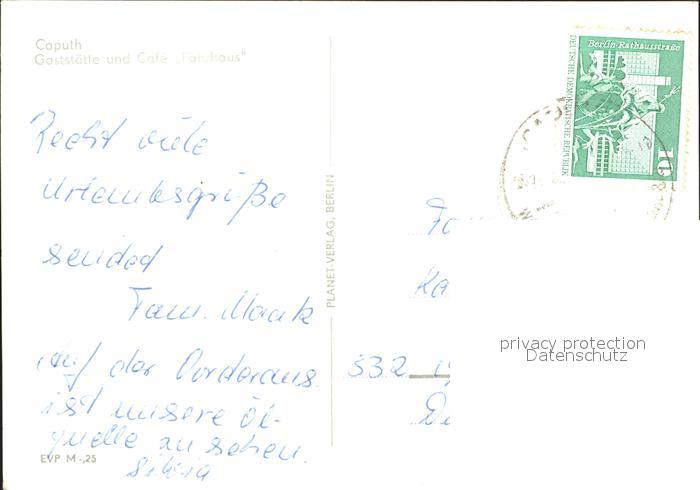 Caputh
Gaststätte und Café „Fährhaus"
Recht viele
Urlaubsgrüße
sendet
Fam. Maak
Auf der Vorderans.
ist unsere Öl-
quelle zu sehen.
Silvia
EVP M -,25
PLANET-VERLAG, BERLIN
Berlin-Rathausstraße
DEUTSCHE DEMOKRATISCHE REPUBLIK
10
Fa
Ka
532
privacy protection
Datenschutz